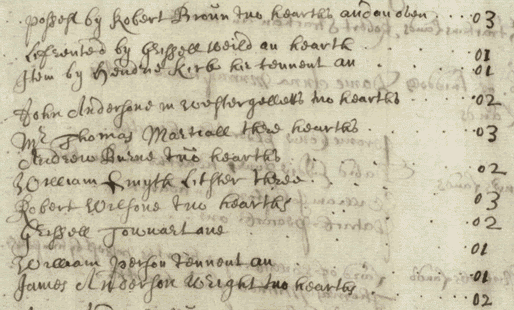 possest by Robert Broun two hearths and an oven 03
by Grissell an hearth 01
Item by Hendrie Kirk hir tennent an 01
John Andersone in two hearths 02
Mr Thomas Martiall thre hearths 03
Andrew Burne two hearths 02
William Smyth Litster three 03
Robert Wilsone two hearths 02
Grissell ane 01
William tennent an 01
James Anderson Wright two hearths 02